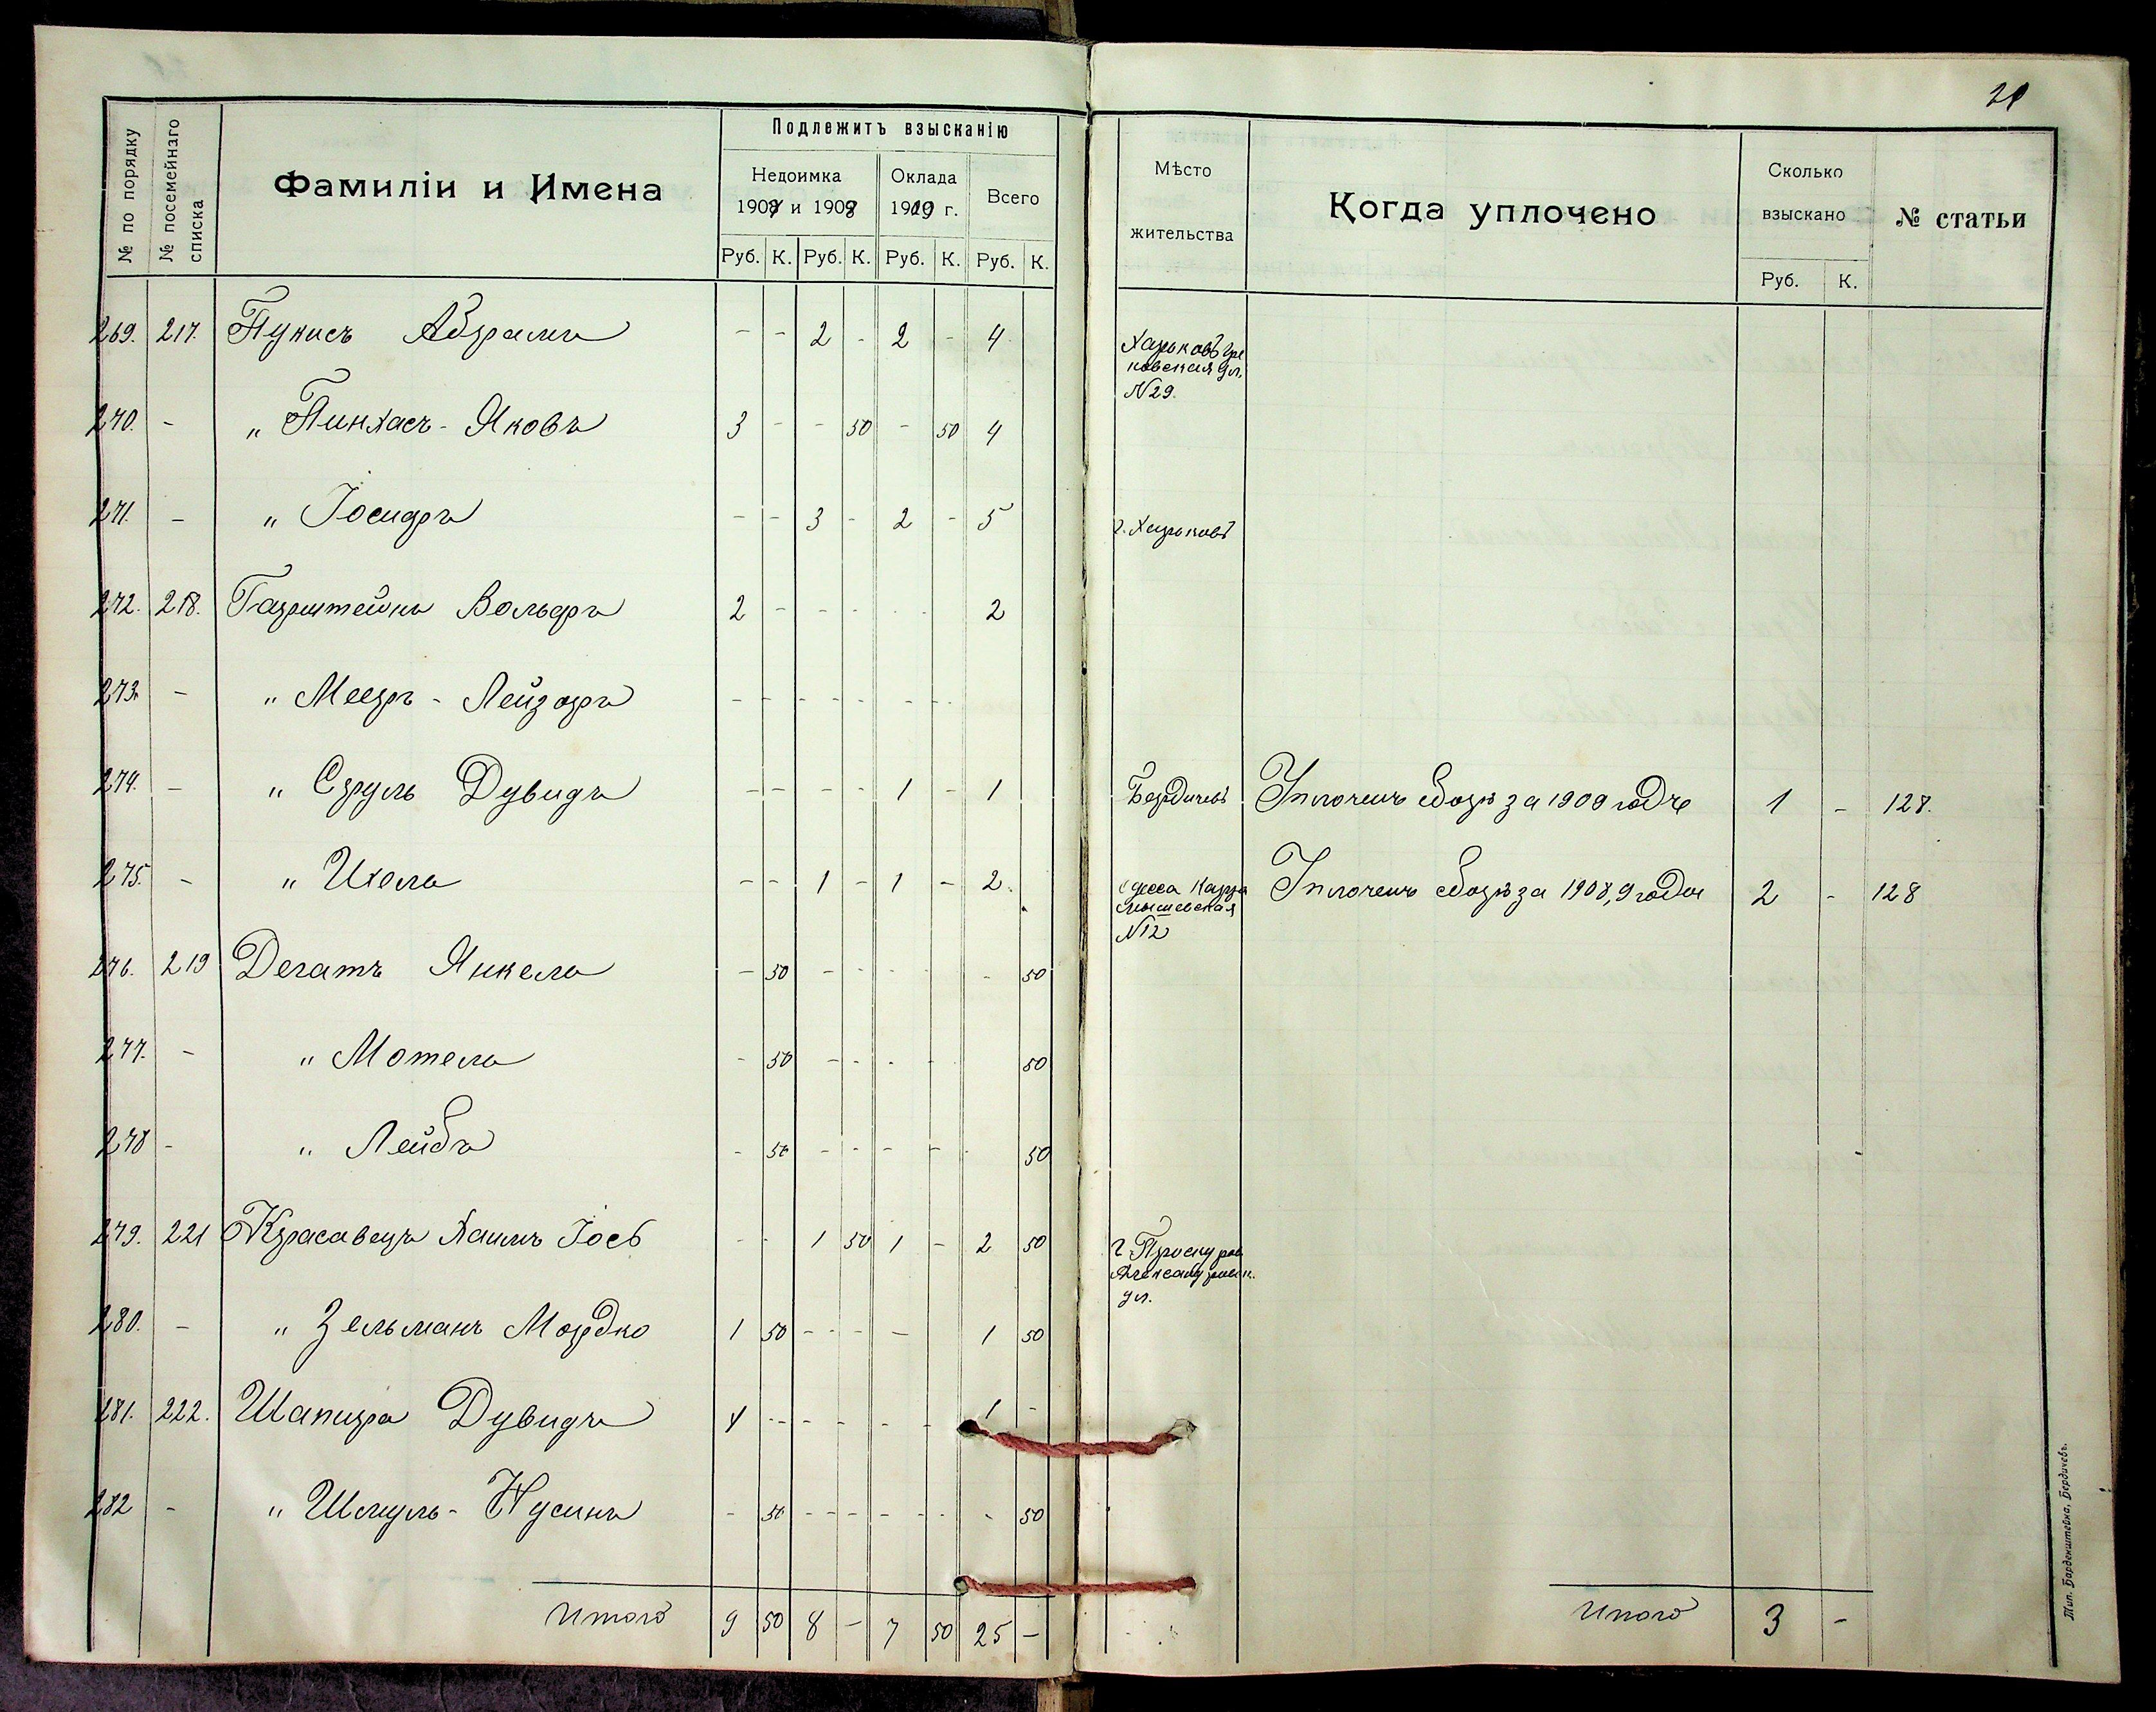 21
№ по порядку
№ посемейнаго списка
Фамиліи и Имена
Подлежитъ взысканію
Недоимка
1907 и 1908
Оклада
1909 г.
Всего
Руб. К. Руб. К. Руб. К. Руб. К.
Мѣсто
жительства
Когда уплочено
Сколько
взыскано
Руб. К.
№ статьи
269. 217. Пукисъ Абрамъ - - 2 - 2 - 4
Харьковъ
ул.
N 29.
270. - " Пинхасъ - Яковъ 3 - - 50 - 50 4
271. - " Іосифъ - - 3 - 2 - 5 г. Харьковъ
272. 218. Гарштейнъ Вольфъ 2 - - - - - 2
273. - " Мееръ - Лейзоръ - - - - - -
274. - " Сруль Дувидъ - - - - 1 - 1 Бердичевъ Уплоченъ сборъ за 1909 годъ 1 - 128.
275. - " Ихель - - 1 - 1 - 2. Уплоченъ сборъ за 1908,9 годы 2 - 128
Одесса
N 12
276. 219 Дегатъ Янкель - 50 - - - - - 50
277. - " Мотель - 50 - - - - 50
278 - " Лейбъ - 50 - - - - - 50
279. 221 Красавецъ Хаимъ Іось - - 1 50 1 - 2 50 г. Проскуров
Александровск.
ул.
280. - " Зельманъ Мордко 1 50 - - - - 1 50
281. 222. Шапира Дувидъ 1 - - - - - 1 -
282 - " Шмуль - Нусинъ - 50 - - - - - 50
Итого 9 50 8 - 7 50 25 -
Итого 3 -
Тип. Барденштейна, Бердичевъ.